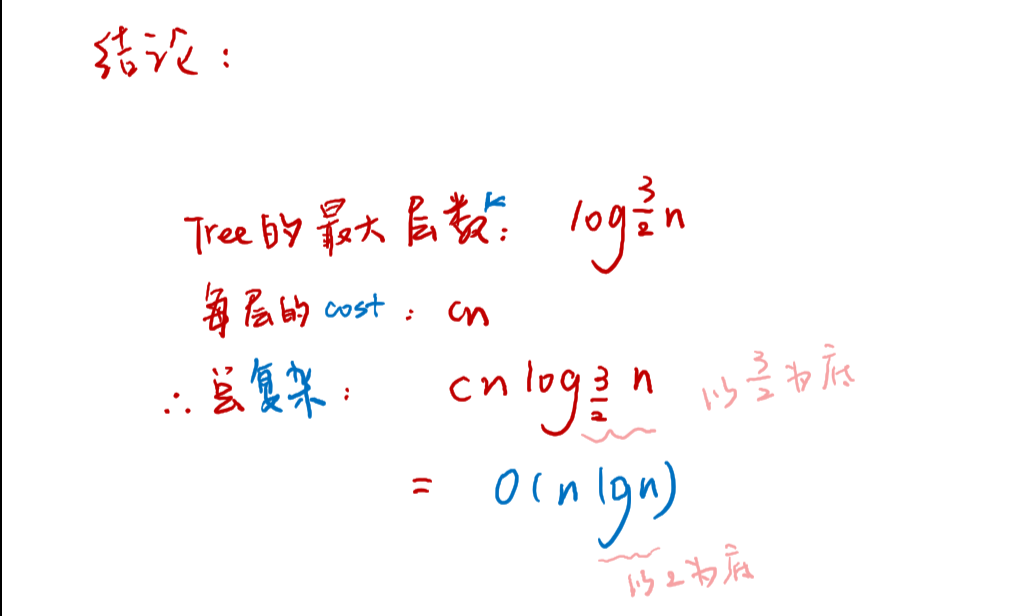 结论：
Tree的最大层数k： log 3/2 n
每层的cost：cn
∴总复杂： cn log 3/2 n 以3/2为底
= O(n lgn)
以2为底